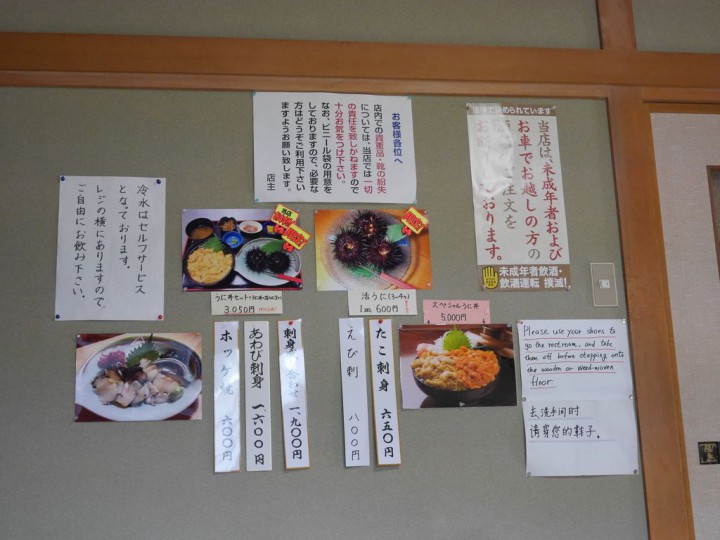 お客様各位へ
店内での貴重品・靴の紛失
については、当店では一切
の責任を致しかねますので
十分お気をつけ下さい。
なお、ビニール袋の用意を
しておりますので、必要な
方はどうぞご利用下さい
ますようお願い致します。
店主
法律で決められています
当店は、未成年者および
お車でお越しの方の
ご注文を
おります。
未成年者飲酒・
飲酒運転 撲滅!
冷水はセルフサービス
となっております。
レジの横にありますので、
ご自由にお飲み下さい。
うに丼セット
3,050円
活うに(3~4ヶ)
1皿 600円
スペシャルうに丼
5,000円
ホッケ焼 六〇〇円
あわび刺身 一、六〇〇円
刺身 合わせ 一、九〇〇円
えび刺 八〇〇円
たこ刺身 六五〇円
Please use your shoes to
go the restroom, and take
them off before stepping onto
the wooden or weed-woven
floor
去洗手间时
请穿您的鞋子。